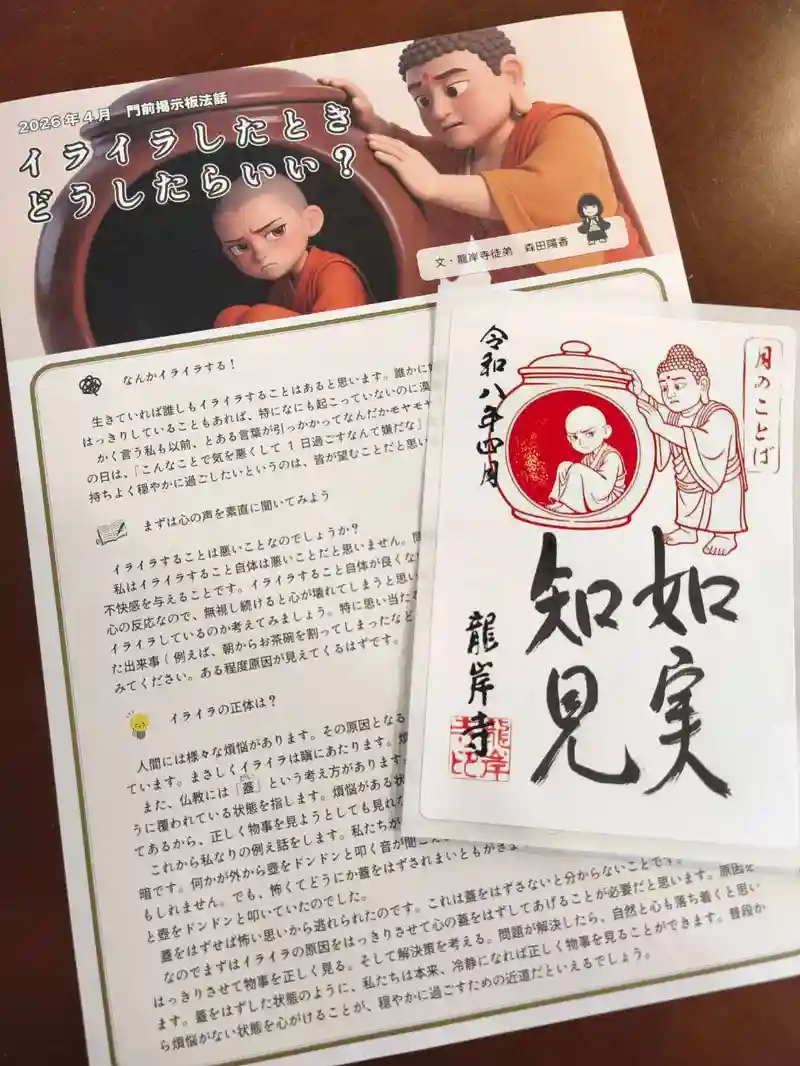 2026年4月 門前掲示板法話
イライラしたとき
どうしたらいい？
文・龍岸寺徒弟 森田陽香
なんかイライラする！
生きていれば誰しもイライラすることはあると思います。誰かに
はっきりしていることもあれば、特になにも起こっていないのに漠
かく言う私も以前、とある言葉が引っかかってなんだかモヤモヤ
の日は、「こんなことで気を悪くして1日過ごすなんて嫌だな」
持ちよく穏やかに過ごしたいというのは、皆が望むことだと思い
まずは心の声を素直に聞いてみよう
イライラすることは悪いことなのでしょうか？
私はイライラすること自体は悪いことだと思いません。
不快感を与えることです。イライラすること自体が良くな
心の反応なので、無視し続けると心が壊れてしまうと思い
イライラしているのか考えてみましょう。特に思い当た
た出来事（例えば、朝からお茶碗を割ってしまったなど
みてください。ある程度原因が見えてくるはずです。
イライラの正体は？
人間には様々な煩悩があります。その原因となる
ています。まさしくイライラは瞋にあたります。
また、仏教には「蓋」という考え方があります。
がい
うに覆われている状態を指します。煩悩がある状
てあるから、正しく物事を見ようとしても見れな
これから私なりの例え話をします。私たちが
暗です。何かが外から壺をドンドンと叩く音が聞こ
もしれません。でも、怖くてどうにか蓋をはずされまいともがきま
と壺をドンドンと叩いていたのでした。
蓋をはずせば怖い思いから逃れられたのです。これは蓋をはずさないと分からないことです。
なのでまずはイライラの原因をはっきりさせて心の蓋をはずしてあげることが必要だと思います。原因を
はっきりさせて物事を正しく見る。そして解決策を考える。問題が解決したら、自然と心も落ち着くと思い
ます。蓋をはずした状態のように、私たちは本来、冷静になれば正しく物事を見ることができます。普段か
ら煩悩がない状態を心がけることが、穏やかに過ごすための近道だといえるでしょう。
月のことば
令和八年四月
如実
知見
龍岸寺